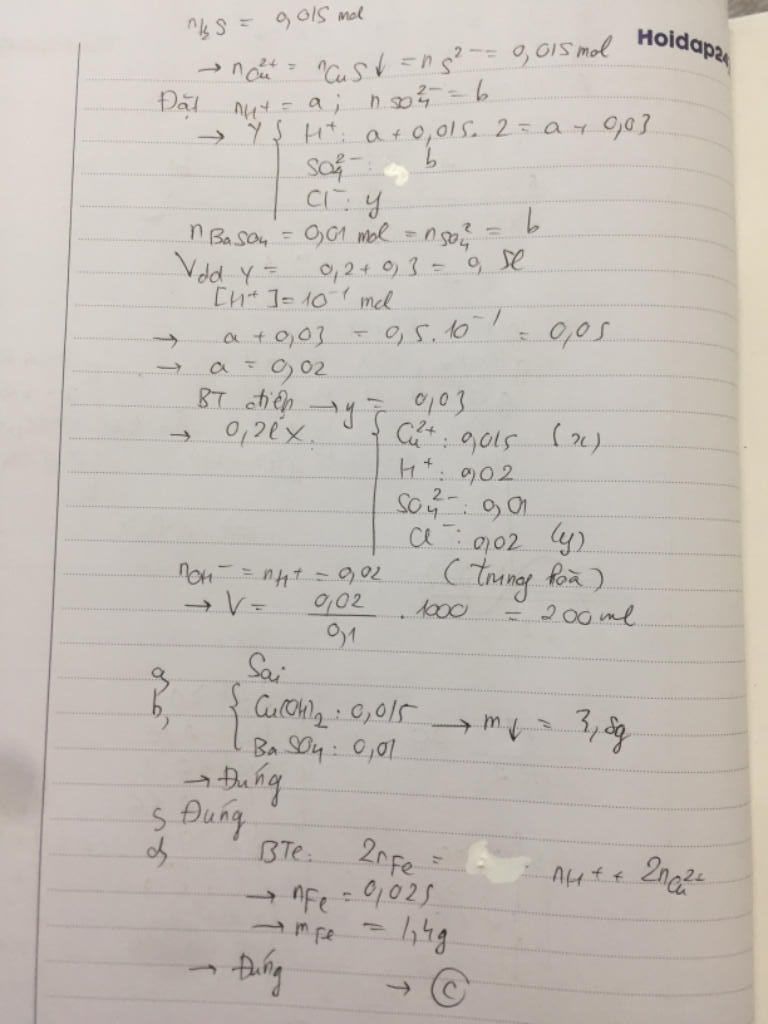 nH₂S = 0,015 mol
Hoidap24
→ nCu²⁺ = nCuS↓ = nS²⁻ = 0,015 mol
Đặt nH⁺ = a ; nSO₄²⁻ = b
→ Y { H⁺: a + 0,015. 2 = a + 0,03
SO₄²⁻: b
Cl⁻: y
nBaSO₄ = 0,01 mol = nSO₄²⁻ = b
Vdd Y = 0,2 + 0,3 = 0,5l
[H⁺] = 10⁻¹ mol
→ a + 0,03 = 0,5.10⁻¹ = 0,05
→ a = 0,02
BT điện → y = 0,03
→ 0,2l X. { Cu²⁺: 0,015 (x)
H⁺: 0,02
SO₄²⁻: 0,01
Cl⁻: 0,02 (y)
nOH⁻ = nH⁺ = 0,02 (trung hoà)
→ V = 0,02/0,1 . 1000 = 200 ml
a, Sai
b, { Cu(OH)₂ : 0,015 → m↓ = 3,8g
BaSO₄ : 0,01
→ Đúng
c, Đúng
d, BTe: 2nFe = nH⁺ + 2nCu²⁺
→ nFe = 0,025
→ mFe = 1,4g
→ Đúng → C